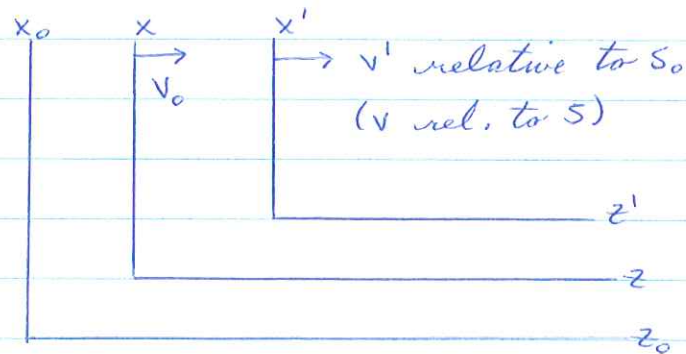 x₀ x x'
v₀ v' relative to S₀
(v rel. to S)
z'
z
z₀